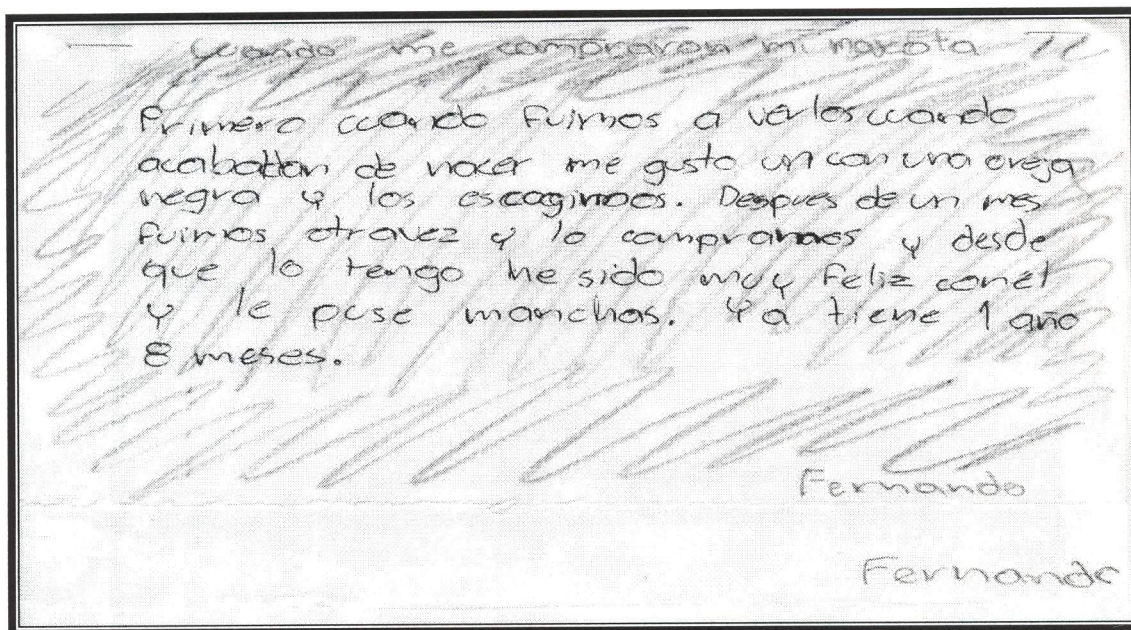 Cuando me compraron mi mascota
Primero cuando fuimos a verlos cuando
acababan de nacer me gusto un con una oreja
negra y los escogimos. Despues de un mes
fuimos otravez y lo compramos y desde
que lo tengo he sido muy feliz conel
y le puse manchas. Ya tiene 1 año
8 meses.
Fernando
Fernando